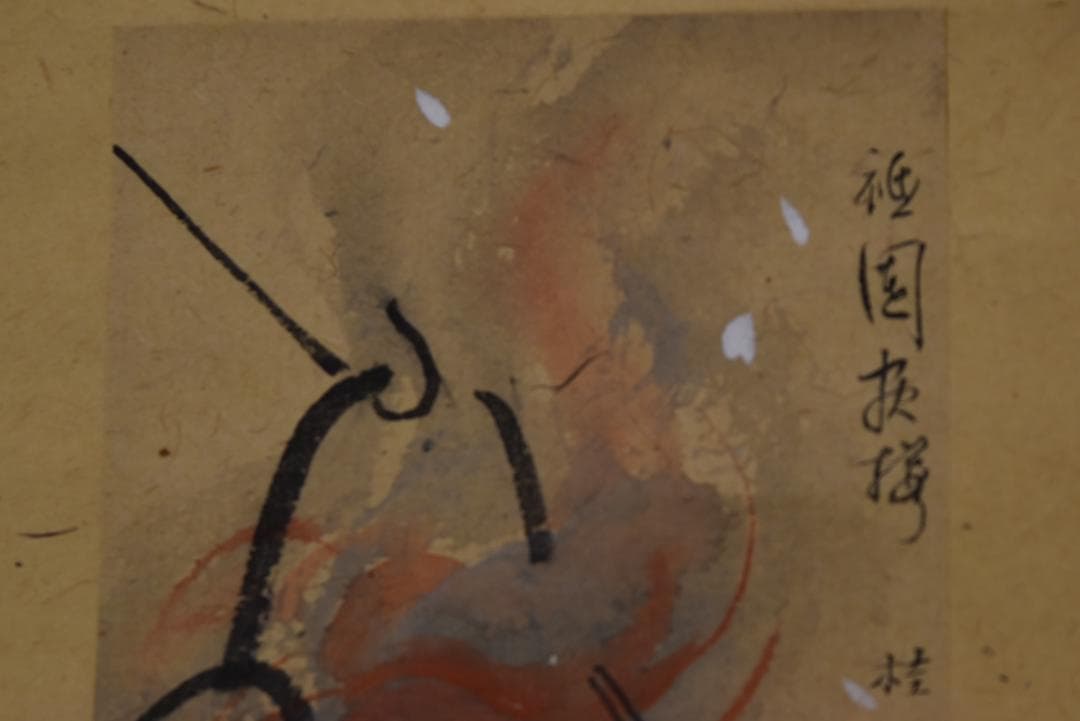 祇園夜桜
桂